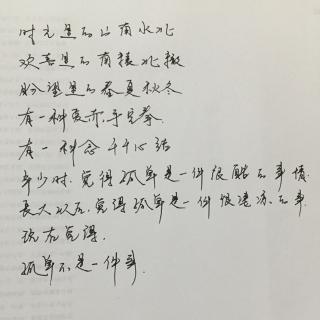 时光是的山南水北
欢喜是的南辕北辙
盼望是的春夏秋冬
有一种
有一种念千千心结
年少时.觉得孤单是一件很酷的事情.
长大以后.觉得孤单是一件很凄凉的事.
现在觉得.
孤单不是一件事.